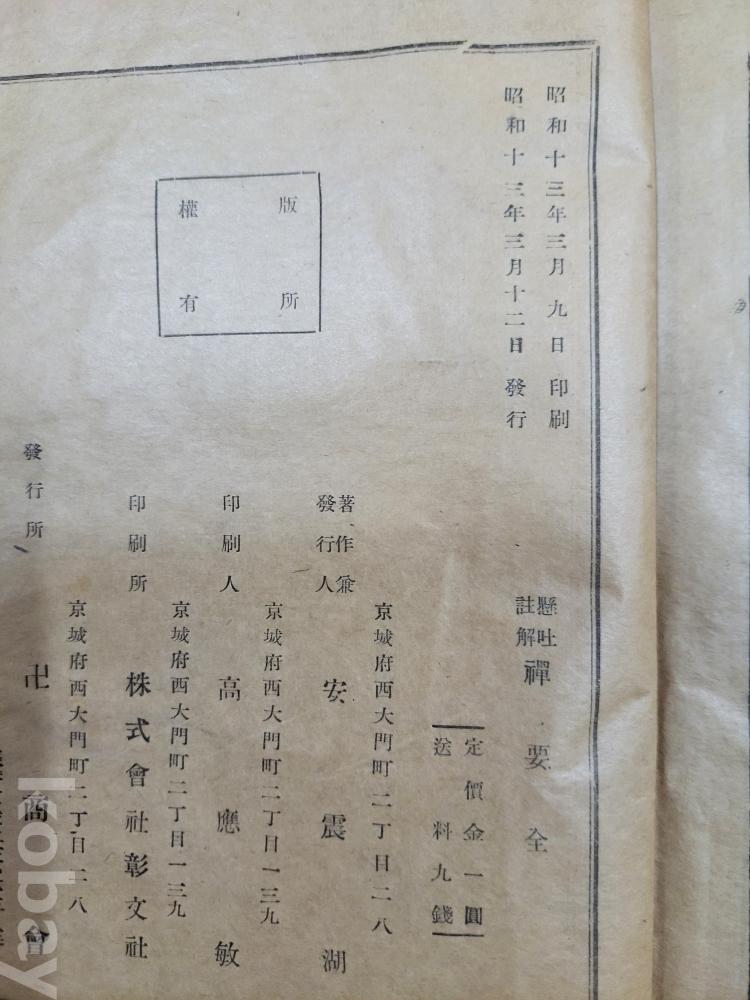 昭和十三年三月九日印刷
昭和十三年三月十二日發行
懸吐
註解
禪要全
定價金一圓
送料九錢
京城府西大門町二丁目二八
著作兼
發行人
安震湖
京城府西大門町二丁目一三九
印刷人
高應敏
京城府西大門町二丁目一三九
印刷所
株式會社彰文社
京城府西大門町二丁目二八
發行所
卍商會
版權
所有
kobay